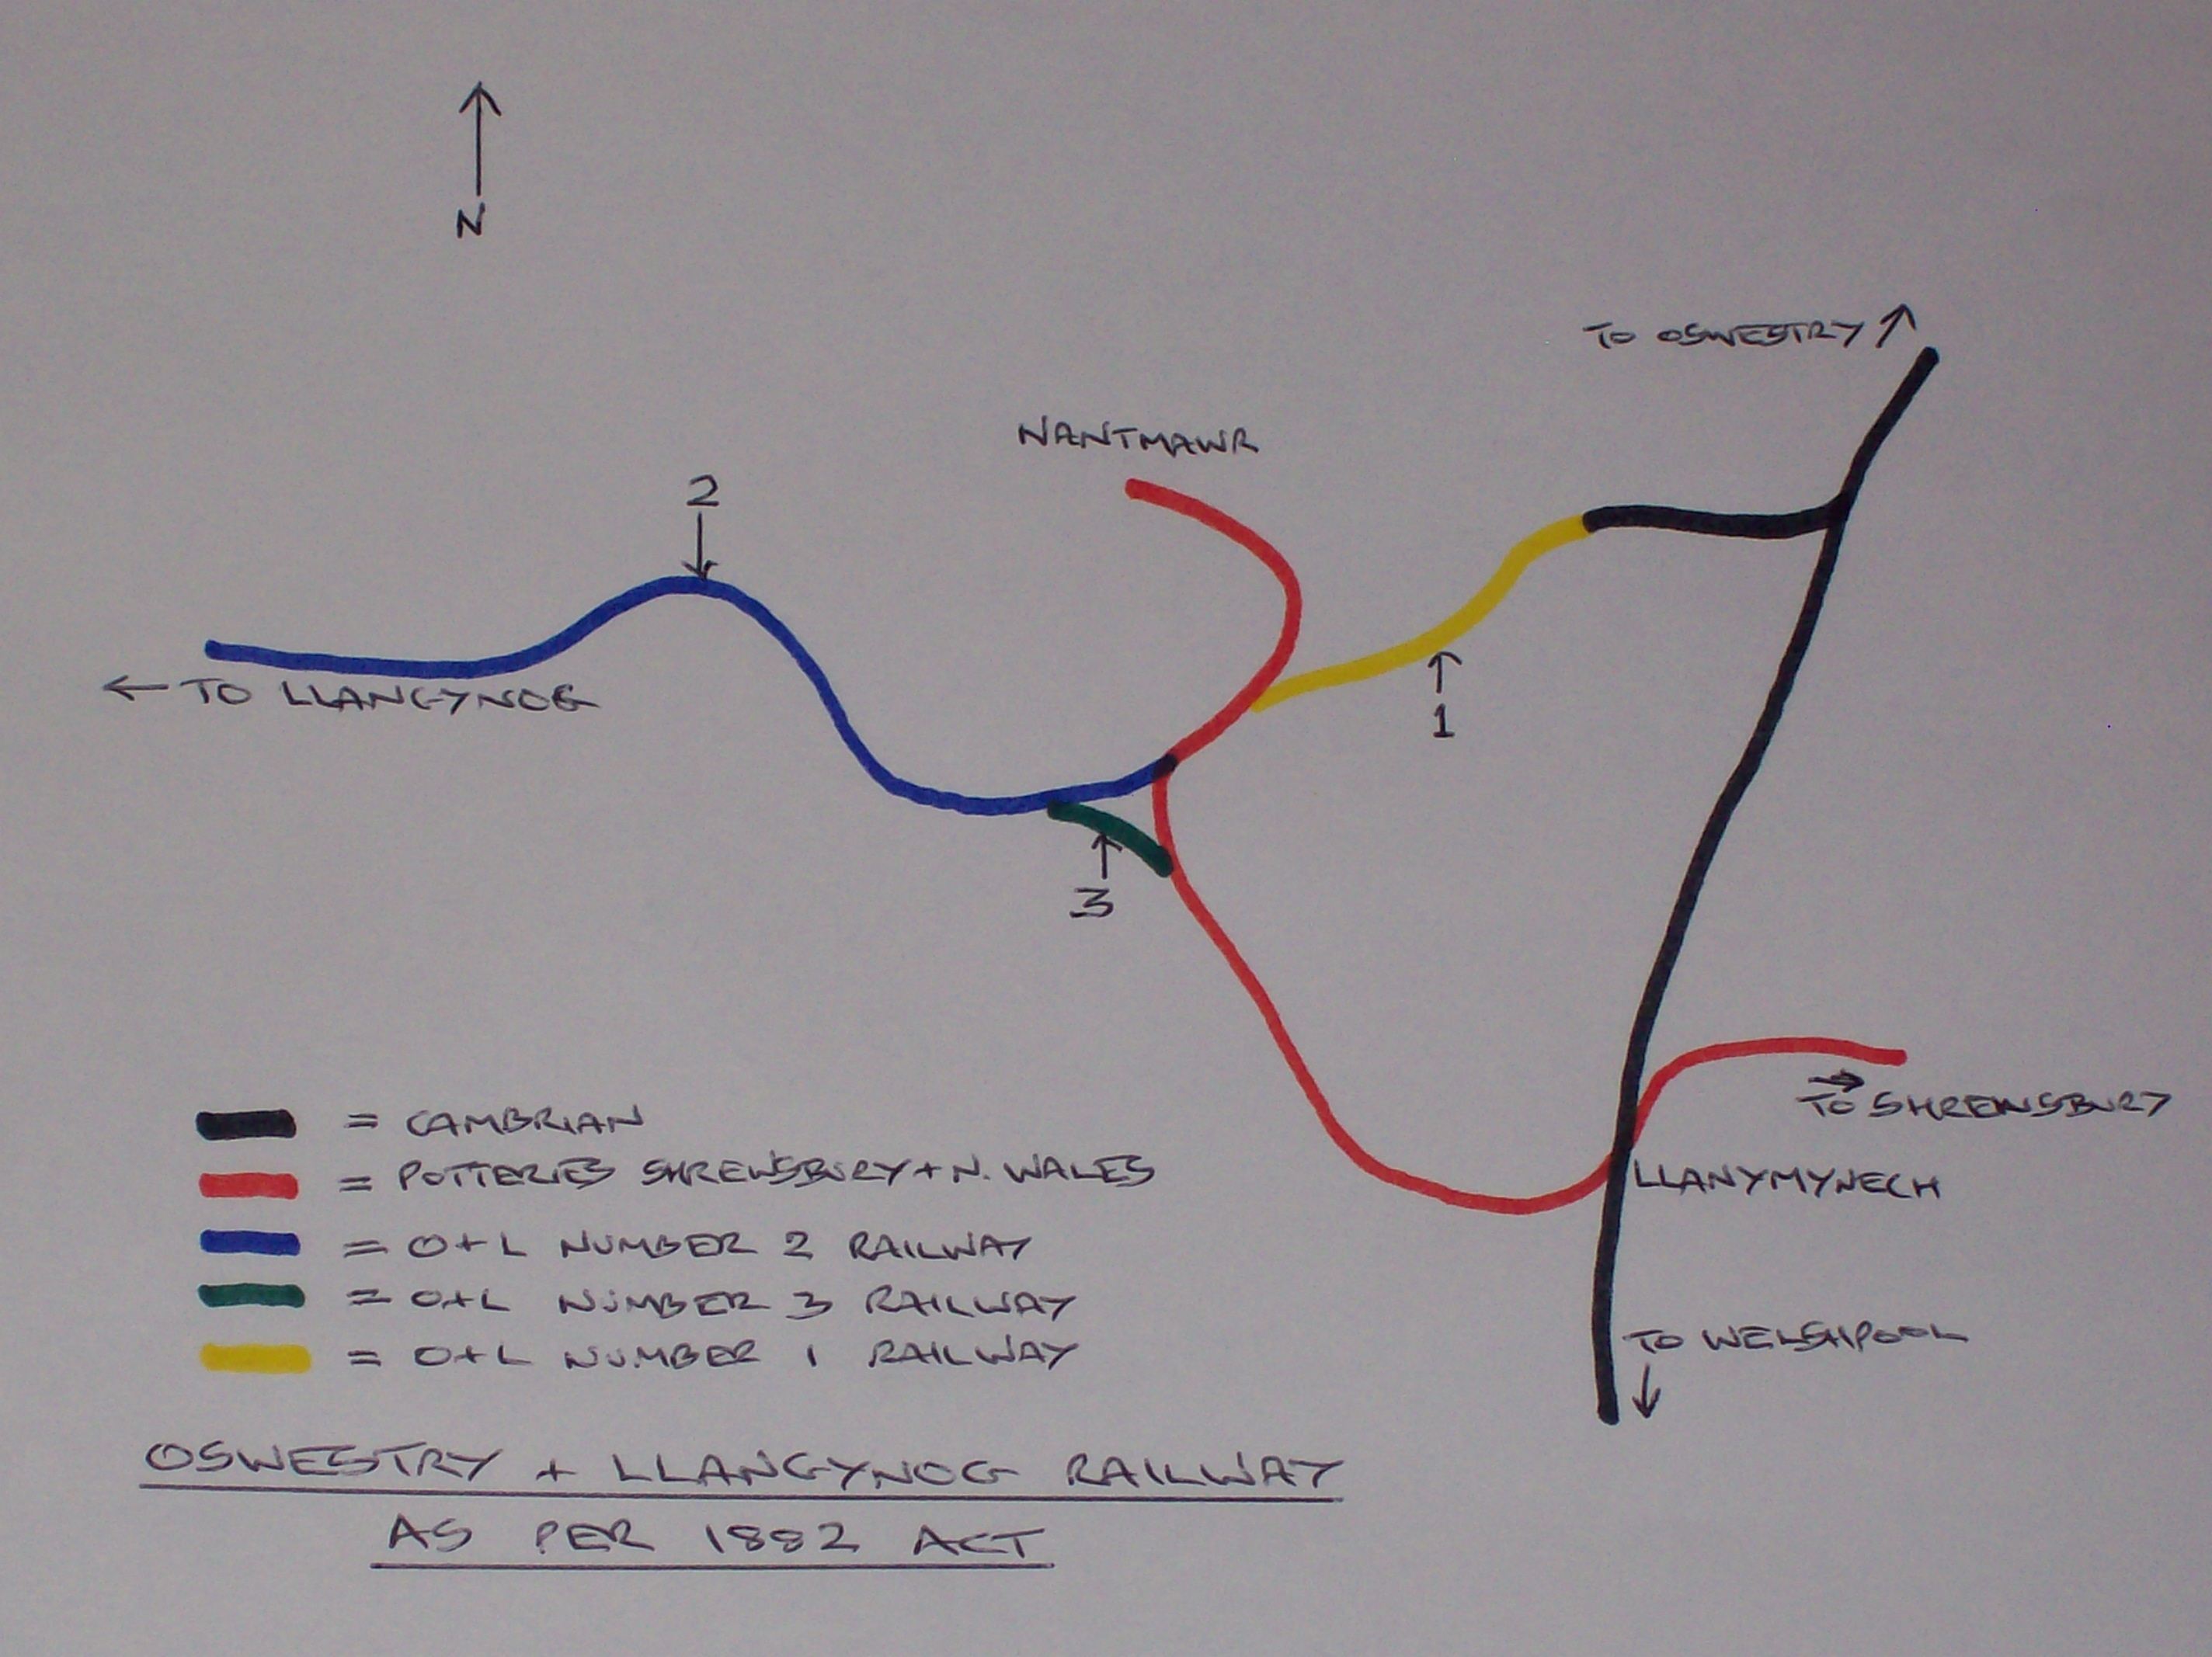 N
TO OSWESTRY
NANTMAWR
2
TO LLANGYNOG
1
3
TO SHREWSBURY
LLANYMYNECH
TO WELSHPOOL
= CAMBRIAN
= POTTERIES SHREWSBURY + N. WALES
= O+L NUMBER 2 RAILWAY
= O+L NUMBER 3 RAILWAY
= O+L NUMBER 1 RAILWAY
OSWESTRY + LLANGYNOG RAILWAY
AS PER 1882 ACT